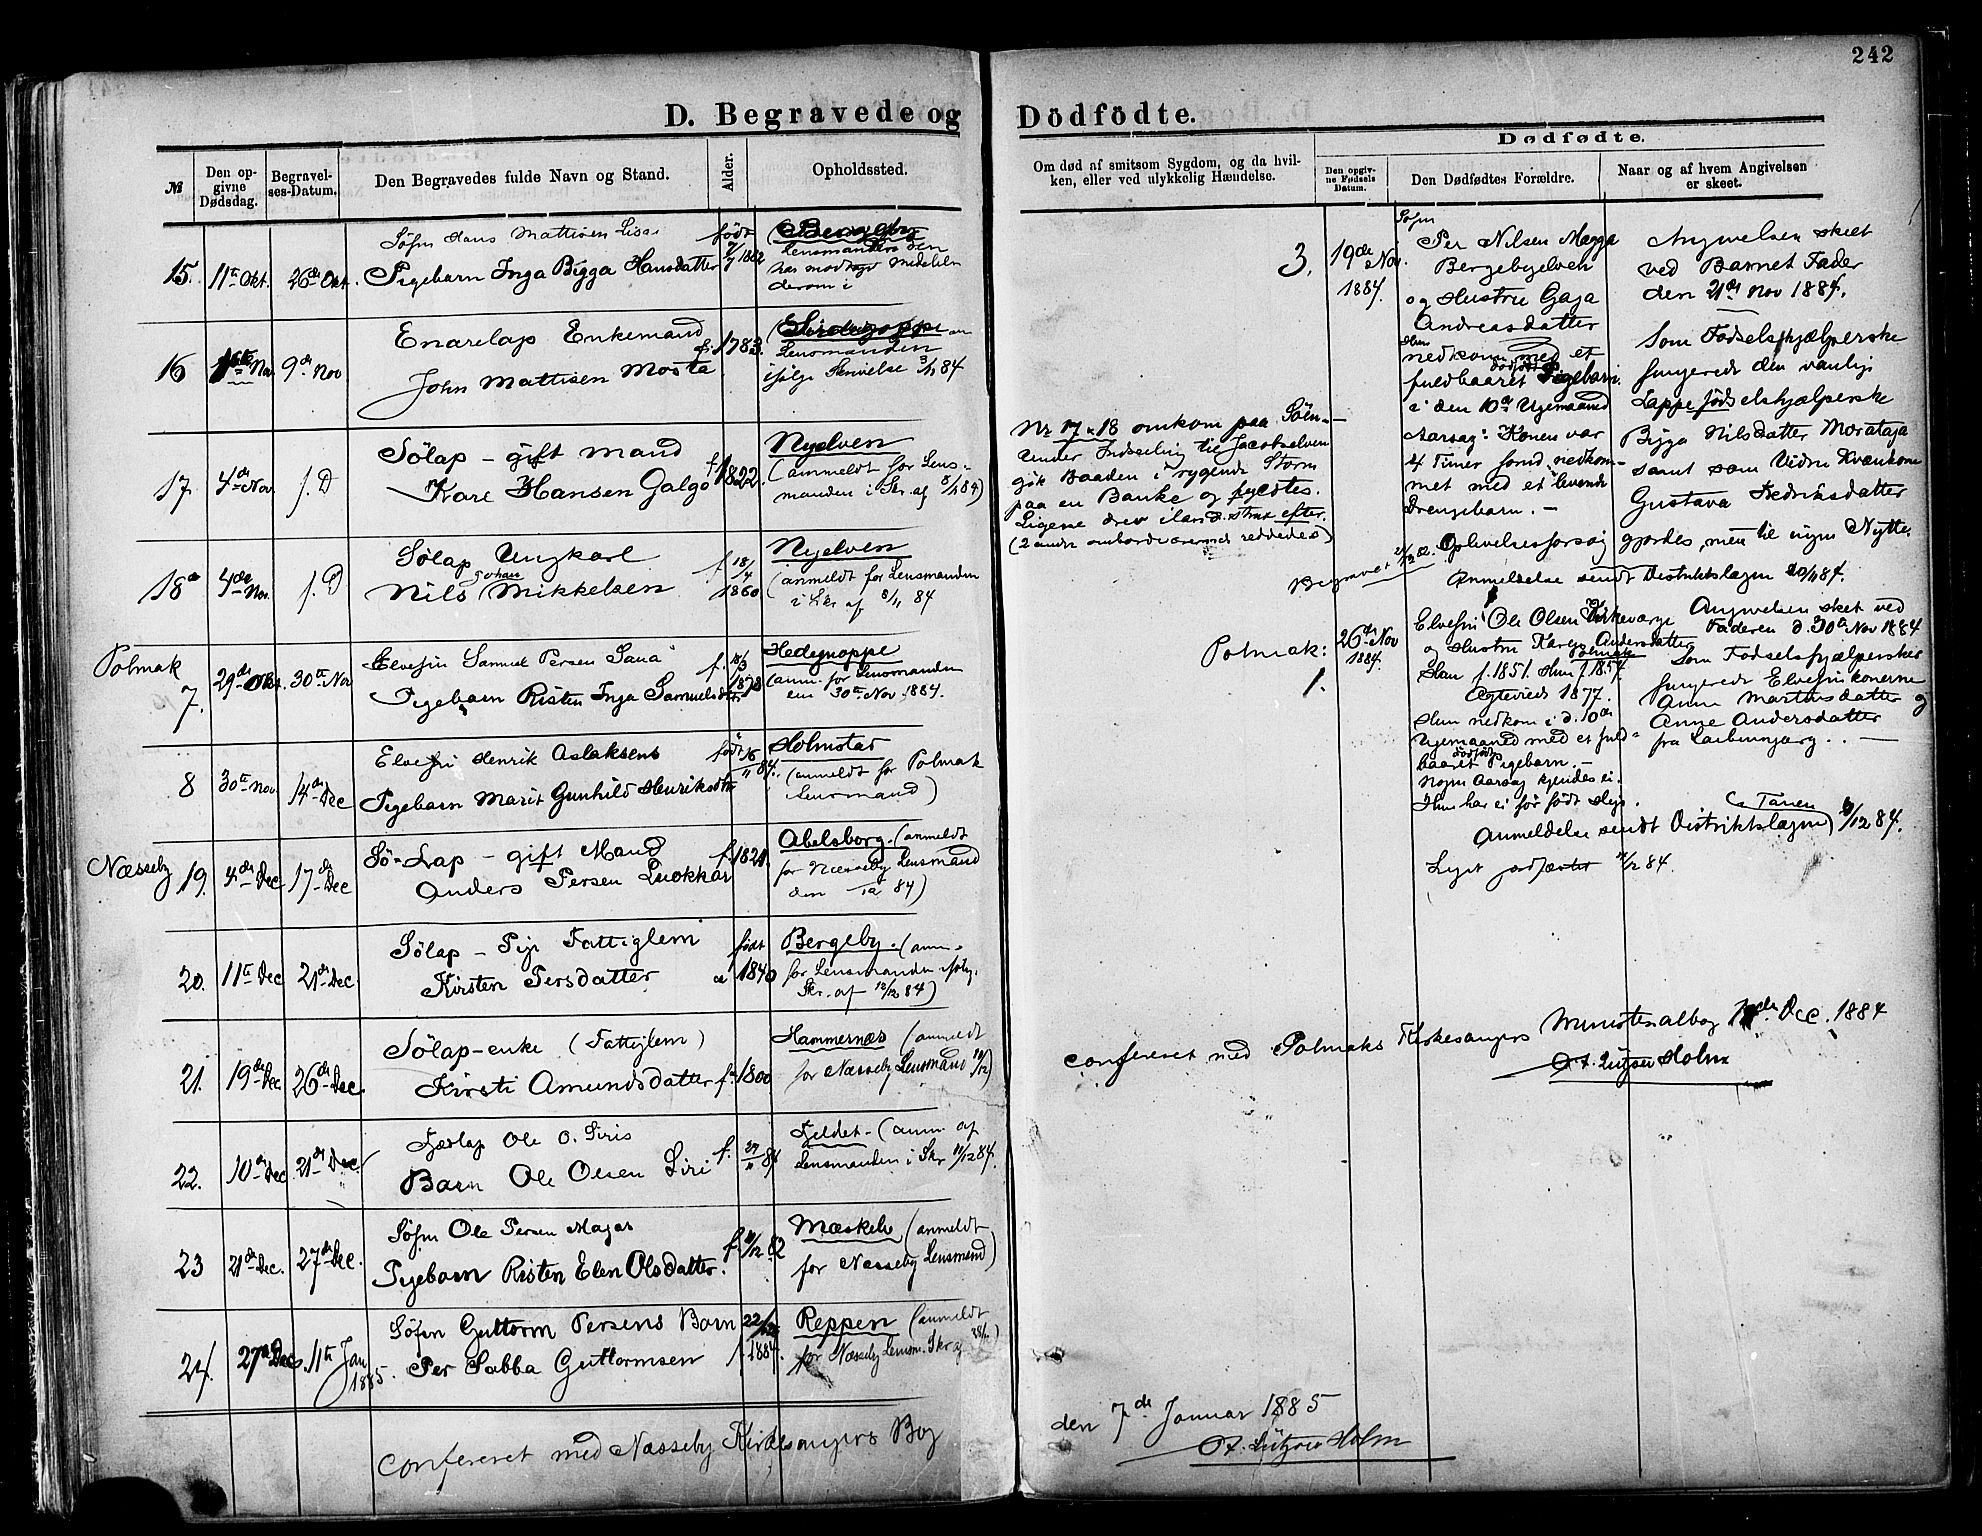 242
D. Begravede og Dödfödte.
№
Den opgivne Dødsdag.
Begravelses-Datum.
Den Begravedes fulde Navn og Stand.
Alder.
Opholdssted.
Om død af smitsom Sygdom, og da hvilken, eller ved ulykkelig Hændelse.
Dødfødte.
Den opgivne Fødsels Datum.
Den Dødfødtes Forældre.
Naar og af hvem Angivelsen er skeet.
Söfin Hans Mattisen
født
15. 11te Okt. 26de Okt. Pigebarn Inga Bigga Hansdatter
Lensmanden
har modtaget
derom i
Enarelap Enkemand
16 Nov 9de Nov
John Mattisen Mosta
f. 1783.
Lensmanden
ifølge Skrivelse 3/11 84
Sölap - gift mand
17. 4de Nov. s. D
Kare Hansen Galgo
f 1822.
Nyelven
(anmeldt for Lens-
manden i Skr. af 8/11 84)
Sölap Ungkarl
18de 4de Nov. s. D
Nils Johan Mikkelsen
f. 18/4 1860
Nyelven
(anmeldt for Lensmanden
i Skr af 8/11 84
Polmak
Elvefin Samuel Persen
7. 29de Okt. 30te Nov
Pigebarn Risten Inga Samuelsdtr
f. 18/3 1878
Hedegnoppe
(anm. for Lensmanden
30te Nov. 1884.
Elvefin Henrik Aslaksens
8 30te Nov 14de Dec
Pigebarn Marit Gunhild Henriksdtr
født 16/11 84.
Holmstad
(anmeldt for Polmak
Lensmand)
Næsseby
Sö-Lap - gift Mand
19. 4de Dec 17de Dec
Anders Persen Lukkar
Abelsborg. (anmeldt
for Næsseby Lensmand
den 84)
Sölap - Pige Fattiglem
20. 11te Dec 21de Dec.
Kirsten Persdatter
født ca 1840
Bergeby. (anm.
for Lensmanden ifølg.
Skr. af 12/12 84)
Sölap-enke (Fattiglem)
21. 19de Dec 26de Dec.
Kirsti Amundsdatter f. 1800
Hammernæs (anmeldt
for Næsseby Lensmand
Fjeldlap Ole O. Siris
22. 10de Dec 21de Dec
Barn Ole Olsen Siri
f. 29/11 84
Fjeldet - (anm. af
Lensmanden i Skr 11/12 84.
Söfin Ole Persen Majas
23 21de Dec. 27de Dec.
Pigebarn Risten Elen Olsdatter.
f. 4/12 82
Mæskelv (anmeldt
for Næsseby Lensmand)
Söfin Guttorm Persens Barn
24. 27de Dec. 11te Jan 1885.
Per Sabba Guttormsen
1884.
Reppen (anmeldt
for Næsseby Lensm. Skr af
Confereret med Næsseby Kirkesangers Bog
Nr 17 & 18 omkom paa Söen -
under Indseiling til Jacobselven
gik Baaden i rygende Storm
paa en Banke og fyldtes.
Ligene drev i land strax efter.
(2 andre ombordværende reddedes)
3. 19de Nov. 1884.
Söfin
Per Nilsen Magga
Bergebyelven
og Hustru Gaja
Andreasdatter
Hun
nedkom med et
fuldbaaret dødfødt Pigebarn.
i den 10de Ugemaaned
Aarsag: Konen var
4 Timer forud nedkom-
met med et levende
Drengebarn. -
Angivelsen skeet
ved Barnet Fader
den 21de Nov 1884.
Som Fødselshjælperske
fungerede den vanlige
Lappefødselshjælperske
Bigga Nilsdatter Morataja
samt som Vidne Kvænkone
Gustava Fredriksdatter
Oplivelsesforsøg gjordes, men til ingen Nytte.
Begravet
Anmeldelse sendt Distriktslægen 20/11 84.
Polmak: 1.
26de Nov 1884.
Elvefin Ole Olsen Kirkeværge
og Hustru Karen Andersdatter
Polmak
Han f. 1851. Hun f 1854.
Egteviede 1877.
Hun nedkom i d. 10de
Ugemaaned med et fuld-
baaret dødfødt Pigebarn. -
Nogen Aarsag kjendes ei.
Hun har ei før født
Angivelsen sket ved
Faderen d. 30te Nov 1884
Som Fødselshjælpersker
fungerede Elvefinkonerne
Anne Martinsdatter og
Anne Andersdatter
fra
Anmeldelse sendt Distriktslægen i Tanen 6/12 84.
Liget jordfæstet 14/12 84.
Confereret med Polmaks Kirkesangers Ministerialbog Dec. 1884
O. Lützow Holm
den 7de Januar 1885
O. Lützow Holm